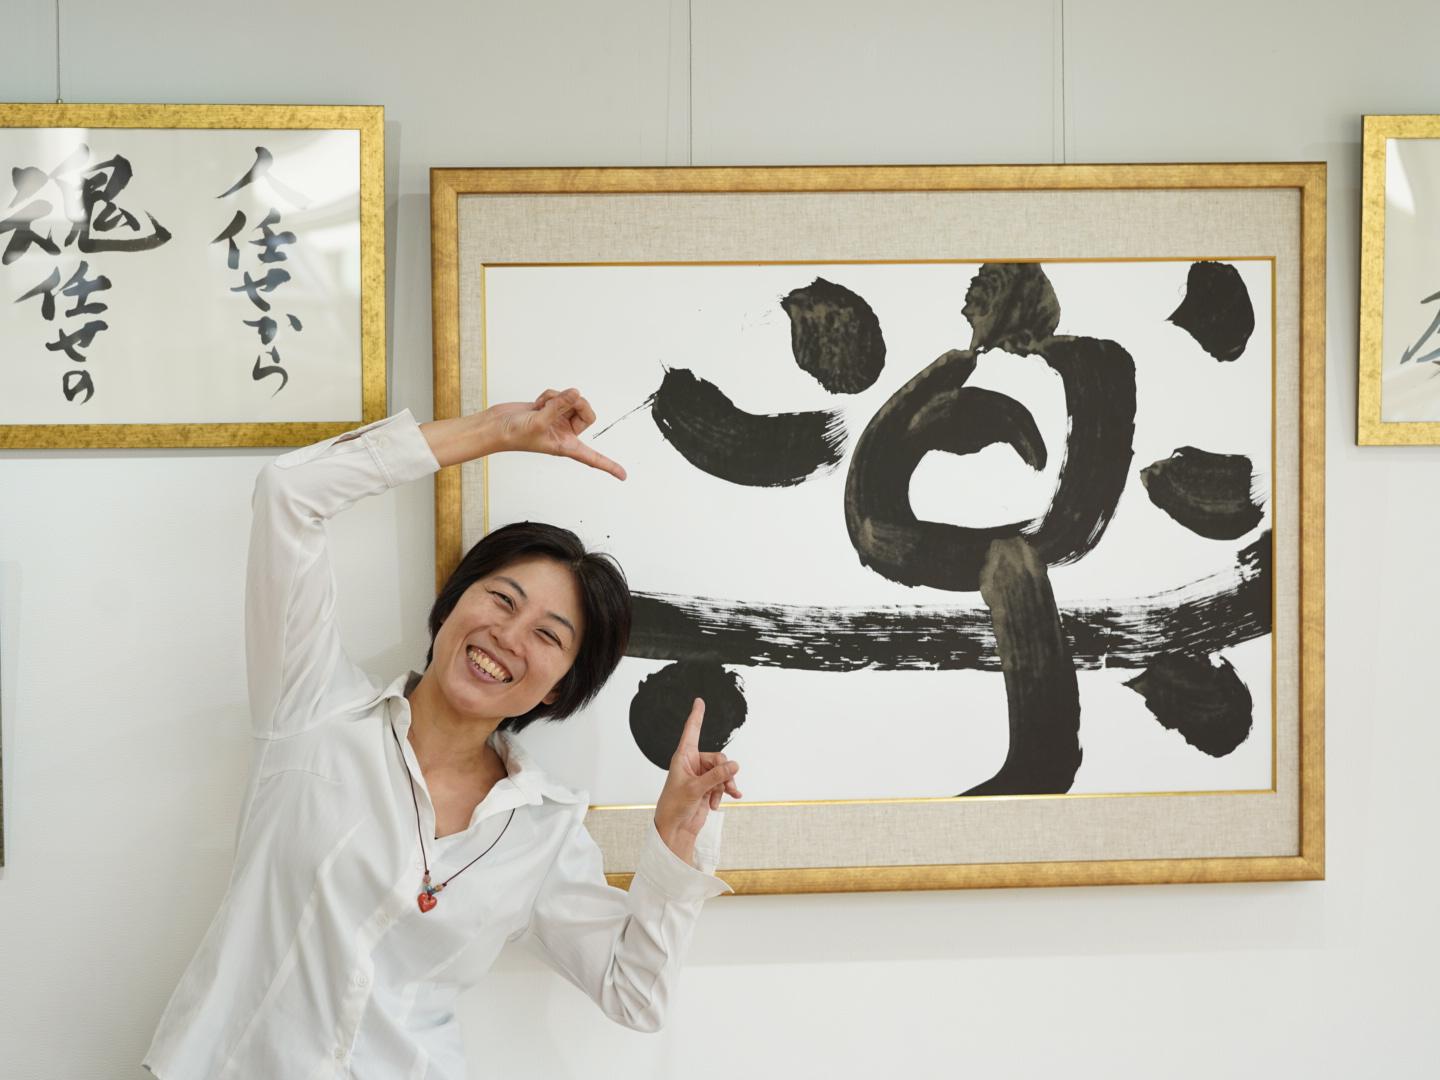 人任せから
魂任せの
楽